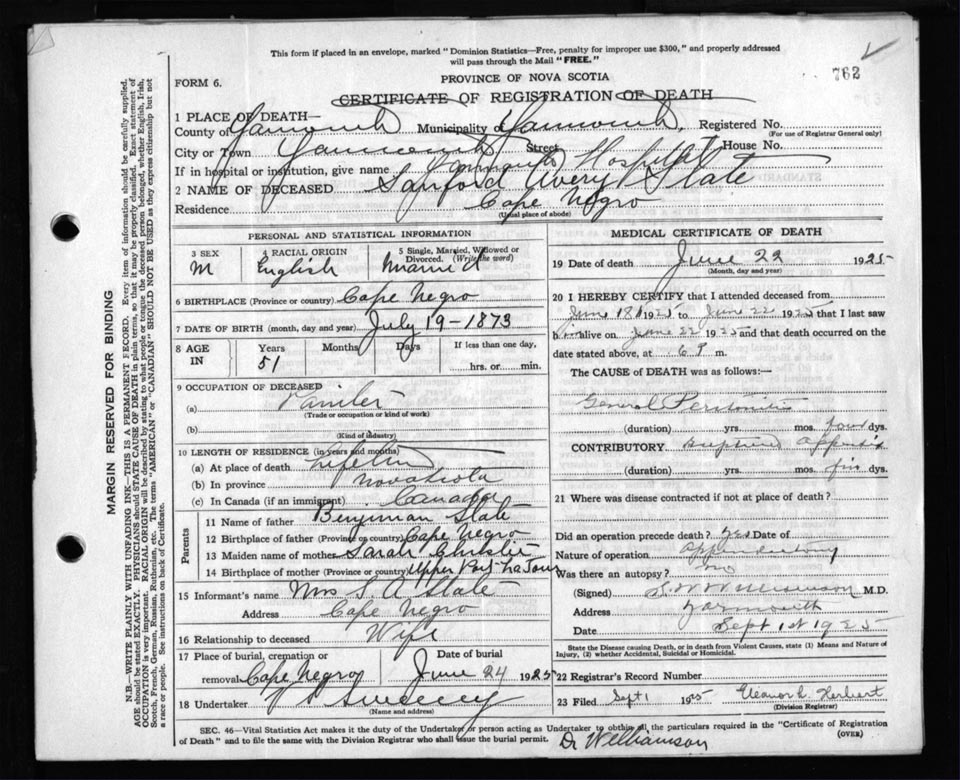 This form if placed in an envelope, marked "Dominion Statistics—Free, penalty for improper use $300," and properly addressed
will pass through the Mail "FREE."
762
FORM 6.
PROVINCE OF NOVA SCOTIA
CERTIFICATE OF REGISTRATION OF DEATH
MARGIN RESERVED FOR BINDING
N.B.—WRITE PLAINLY WITH UNFADING INK—THIS IS A PERMANENT RECORD. Every item of information should be carefully supplied.
AGE should be stated EXACTLY. PHYSICIANS should STATE CAUSE OF DEATH in plain terms, so that it may be properly classified. Exact statement of
OCCUPATION is very important. RACIAL ORIGIN will be described by stating to what people or tongue the deceased person belonged, whether English, Irish,
Scotch, French, German, Russian, Ruthenian, etc. The terms "AMERICAN" or "CANADIAN" SHOULD NOT BE USED as they express citizenship but not
a race or people. See instructions on back of Certificate.
1 PLACE OF DEATH—
County of Yarmouth Municipality of Yarmouth, Registered No.
(For use of Registrar General only)
City or Town Yarmouth Street House No.
If in hospital or institution, give name Yarmouth Hospital
2 NAME OF DECEASED Sanford Avery Slate
Residence Cape Negro
(Usual place of abode)
PERSONAL AND STATISTICAL INFORMATION
3 SEX M
4 RACIAL ORIGIN English
5 Single, Married, Widowed or Divorced. (Write the word) Married
6 BIRTHPLACE (Province or country) Cape Negro
7 DATE OF BIRTH (month, day and year) July 19-1873
8 AGE IN Years 51 Months Days If less than one day, hrs. or min.
9 OCCUPATION OF DECEASED
(a)
(Trade or occupation or kind of work)
(b)
(Kind of industry)
10 LENGTH OF RESIDENCE (in years and months)
(a) At place of death
(b) In province Nova Scotia
(c) In Canada (if an immigrant) Canada
Parents
11 Name of father Benjiman Slate
12 Birthplace of father (Province or country) Cape Negro
13 Maiden name of mother Sarah Christie
14 Birthplace of mother (Province or country) Upper Port La Tour
15 Informant's name Mrs S. A Slate
Address Cape Negro
16 Relationship to deceased Wife
17 Place of burial, cremation or removal Cape Negro Date of burial June 24 1925
18 Undertaker Sweeney
(Name and address)
MEDICAL CERTIFICATE OF DEATH
19 Date of death June 22 1925
(Month, day and year)
20 I HEREBY CERTIFY that I attended deceased from
June 18 1925 to June 22 1925 that I last saw
him alive on June 22 1925 and that death occurred on
date stated above, at 6 P m.
The CAUSE of DEATH was as follows:—
General Peritonitis
(duration) yrs. mos. four dys.
CONTRIBUTORY Ruptured Appendix
(duration) yrs. mos. dys.
21 Where was disease contracted if not at place of death?
Did an operation precede death? yes Date of
Nature of operation Appendectomy
Was there an autopsy? no
(Signed) M.D.
Address Yarmouth
Date Sept 1st 1925
State the Disease causing Death, or in death from Violent Causes, state (1) Means and Nature of
Injury, (2) whether Accidental, Suicidal or Homicidal.
22 Registrar's Record Number
23 Filed Sept 1 1925 Eleanor L. Herbert
(Division Registrar)
SEC. 46—Vital Statistics Act makes it the duty of the Undertaker or person acting as Undertaker to obtain all the particulars required in the "Certificate of Registration
of Death" and to file the same with the Division Registrar who shall issue the burial permit.
(OVER)
Dr Williamson